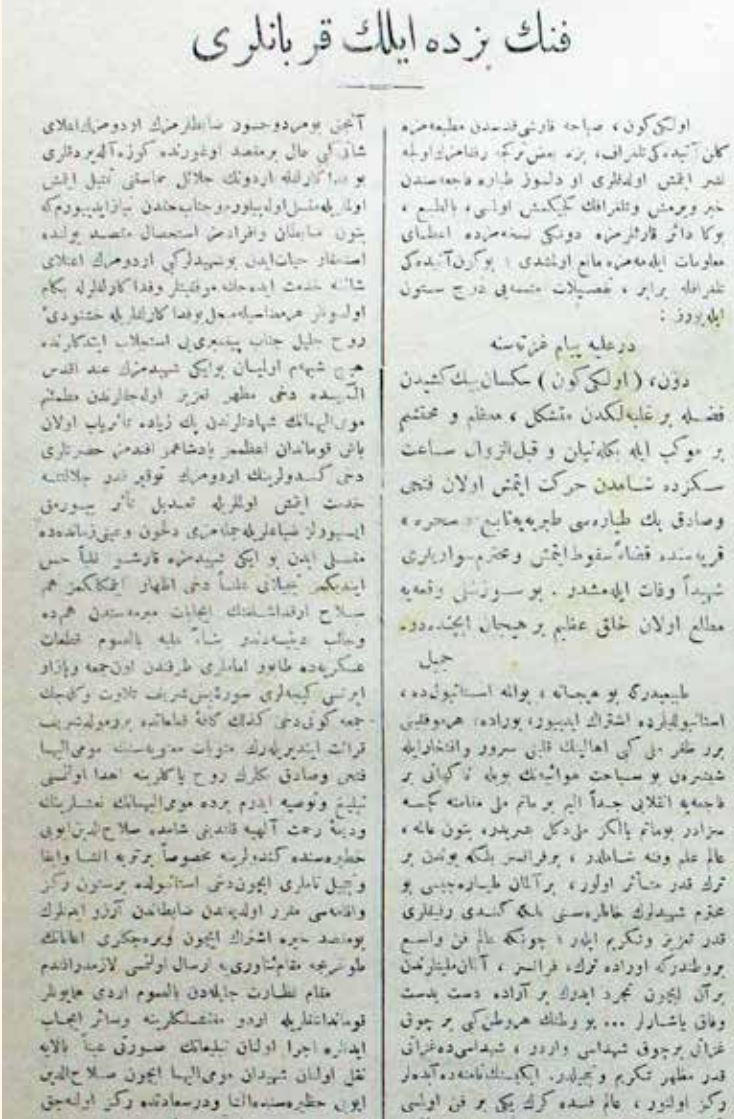 فنك بزده ايلك قربانلرى
اولكى كون ، صباحه قارشى قدسدن مطبعه‌مزه
كلن آتيده‌كى تلغراف ، بزه بعض تركجه رفقامزك اولجه
نشر ايتمش اولدقلرى او دلسوز طياره فاجعه‌سندن
خبر ويرمش وتلغرافك كجيكمش اولسى ، بالطبع ،
بوكا دائر قارئلرمزه دونكى نسخه‌مزده اعطاى
معلومات ايله‌مه‌مزه مانع اولمشدى ؛ بوكون آتيده‌كى
تلغرافله برابر ، تفصيلات متممه‌يى درج ستون
ايليورز :
درعليه پيام غزته‌سنه
دون ، ( اولكى كون ) سكسان بيك كشيدن
فضله بر غلبه‌لكدن متشكل ، معظم و محتشم
بر موكب ايله بكله‌نيلن و قبل الزوال ساعت
سكزده شامدن حركت ايتمش اولان فتحى
وصادق بك طياره‌سى طبريه‌يه تابع « سمره »
قريه‌سنده قضاءً سقوط ايتمش ومحترم سواريلرى
شهيداً وفات ايله‌مشدر . بو سوزشلى وقعه‌يه
مطلع اولان خلق عظيم بر هيجان ايچنده‌در .
جبل
طبيعيدركه بو هيجانه ، بوالمه استانبول‌ده ،
استانبوللیلرده اشتراك ايدييور ، بوراده : هر موفقيتى
برر ظفر ملى كبى اهالينك قلبى سرور وافتخار ايله
شيشيرن بو سياحت هوائيه‌نك بويله ناكهانى بر
فاجعه‌يه انقلابى جداً اليم بر ماتم ملى مقامنه كچسه
سزادر بوماتم يالكز ملى دكل عمومیدر ، بتون عالمه ،
عالم علم وفنه شاملدر ، بر فرانسز بلكه بوندن بر
ترك قدر متأثر اولور ، بر آلمان طياره‌جيسى بو
محترم شهيدلرك خاطره‌سنى بلكه كندى رفيقلرى
قدر تعزيز وتكريم ايلر ؛ چونكه عالم فن واسع
بروطندركه اوراده ترك ، فرانسز ، آلمان مليتلرندن
برآن ايچون تجرد ايدرك بر آراده دست بدست
وفاق ياشارلر ... بو وطنك هر وطن كبى بر چوق
غزاتى برچوق شهداسى واردر ، شهداسى ده غزاتى
قدر مظهر تكريم وتبجيلدر . ايكيسنك نامنه‌ده آبده‌لر
ركز اولنور ، عالم فنده كرك يكى بر فن اولسى
آنجق بومردوجسور ضابطلرمزك اردومزك اعلاى
شانى كبى عال بر مقصد اوغورنده كوزه آلديردقلرى
بو فداكارلقله اردونك جلائل حماستنى تمثيل ايتمش
اولملريله متسلى اوله‌بيلور وجناب حقدن نياز ايديورم‌كه
بتون ضابطان وافرادمز استحصال مقصد يولنده
استحقار حيات ايدن بوشهيدلر كبى اردومزك اعتلاى
شاننه خدمت ايده‌جك موفقيتلر وفداكارلقلرله بكام
اولسونلر
روح جليل جناب پيغمبرى‌يى استجلاب ايتدكلرنده
هيچ شبهه‌م اوليان بوايكى شهيدمزك عند اقدس
الهيده دخى مظهر تعزيز اوله‌جقلرندن مطمئنم
مومى‌اليهمانك شهادتلرندن پك زياده تأثرياب اولان
باش قوماندان اعظممز پادشاهمز افندمز حضرتلرى
دخى كندولرينك اردومزك توقير قدر جلالتنه
خدمت ايتمش اولملريله تعديل تأثر بيورمق
ايسيورلر ضياعلريله جمله‌مزى دلخون وعينى زمانده‌ده
متسلى ايدن بو ايكى شهيدمزه قارشو قلباً حس
ايتديكمز تبجيلاتى علناً دخى اظهار ايتمكلكمز هم
سلاح ارقداشلغنك ايجابات مبرمه‌سندن همده
وجائب دينيه‌دندر بناءً عليه بالعموم قطعات
عسكريه‌ده طابور اماملرى طرفندن اون جمعه وپازار
ايرتسى كيجه‌لرى سورۀ يس شريف تلاوت وكله‌جك
جمعه كونى دخى كذلك كافۀ قطعاتده برر مولد شريف
قرائت ايتديريله‌رك مثوبات معنويه‌سنك مومى‌اليهما
فتحى وصادق بكلرك روح پاكلرينه اهدا اولنمسنى
تبليغ وتوصيه ايدرم برده مومى‌اليهمانك نعشلرينك
وديعۀ رحمت آلهيه قلنديغى شامده صلاح الدين ايوبى
حظيره‌سنده كندولرينه مخصوصاً برتربه انشا وابقا
وتبجيل ناملرى ايچون دخى استانبولده برستون ركز
واقامه‌سى مقرر اولديغندن ضابطاندن آرزو ايدنلرك
بومقصد خيره اشتراك ايچون ويره‌جكلرى اعاناتك
طوغريجه مقام ثناورى‌يه ارسال اولنمسى لازمدر افندم
مقام نظارت جليله‌دن بالعموم اردوى همايونلر
قوماندانلقلريله اردو مفتشلكلرينه وسائر ايجاب
ايدنلره اجرا اولنان تبليغاتك صورتى عيناً بالايه
نقل اولنان شهيدان مومى‌اليهما ايچون صلاح الدين
ايوبى حظيره‌سنده انشا ودرسعادتده ركز اوله‌جق